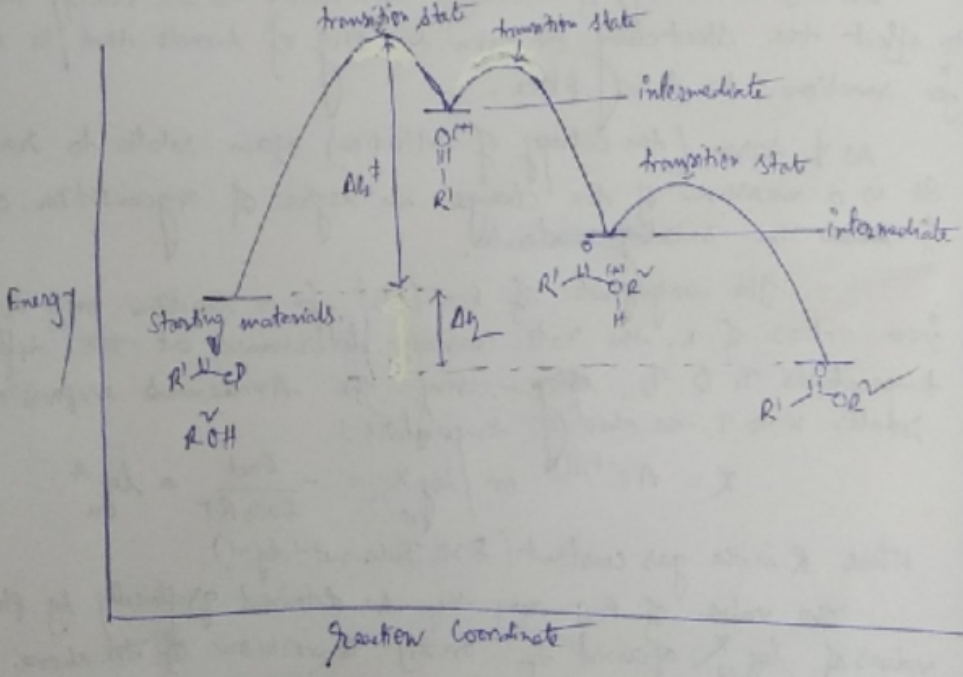 transition state
transition state
intermediate
O(+)
|||
|
R'
ΔG‡
transition state
intermediate
O
R' (+) OR²
H
Energy
Starting materials.
R' Cl
R²OH
ΔG
O
R' OR²
Reaction Coordinate